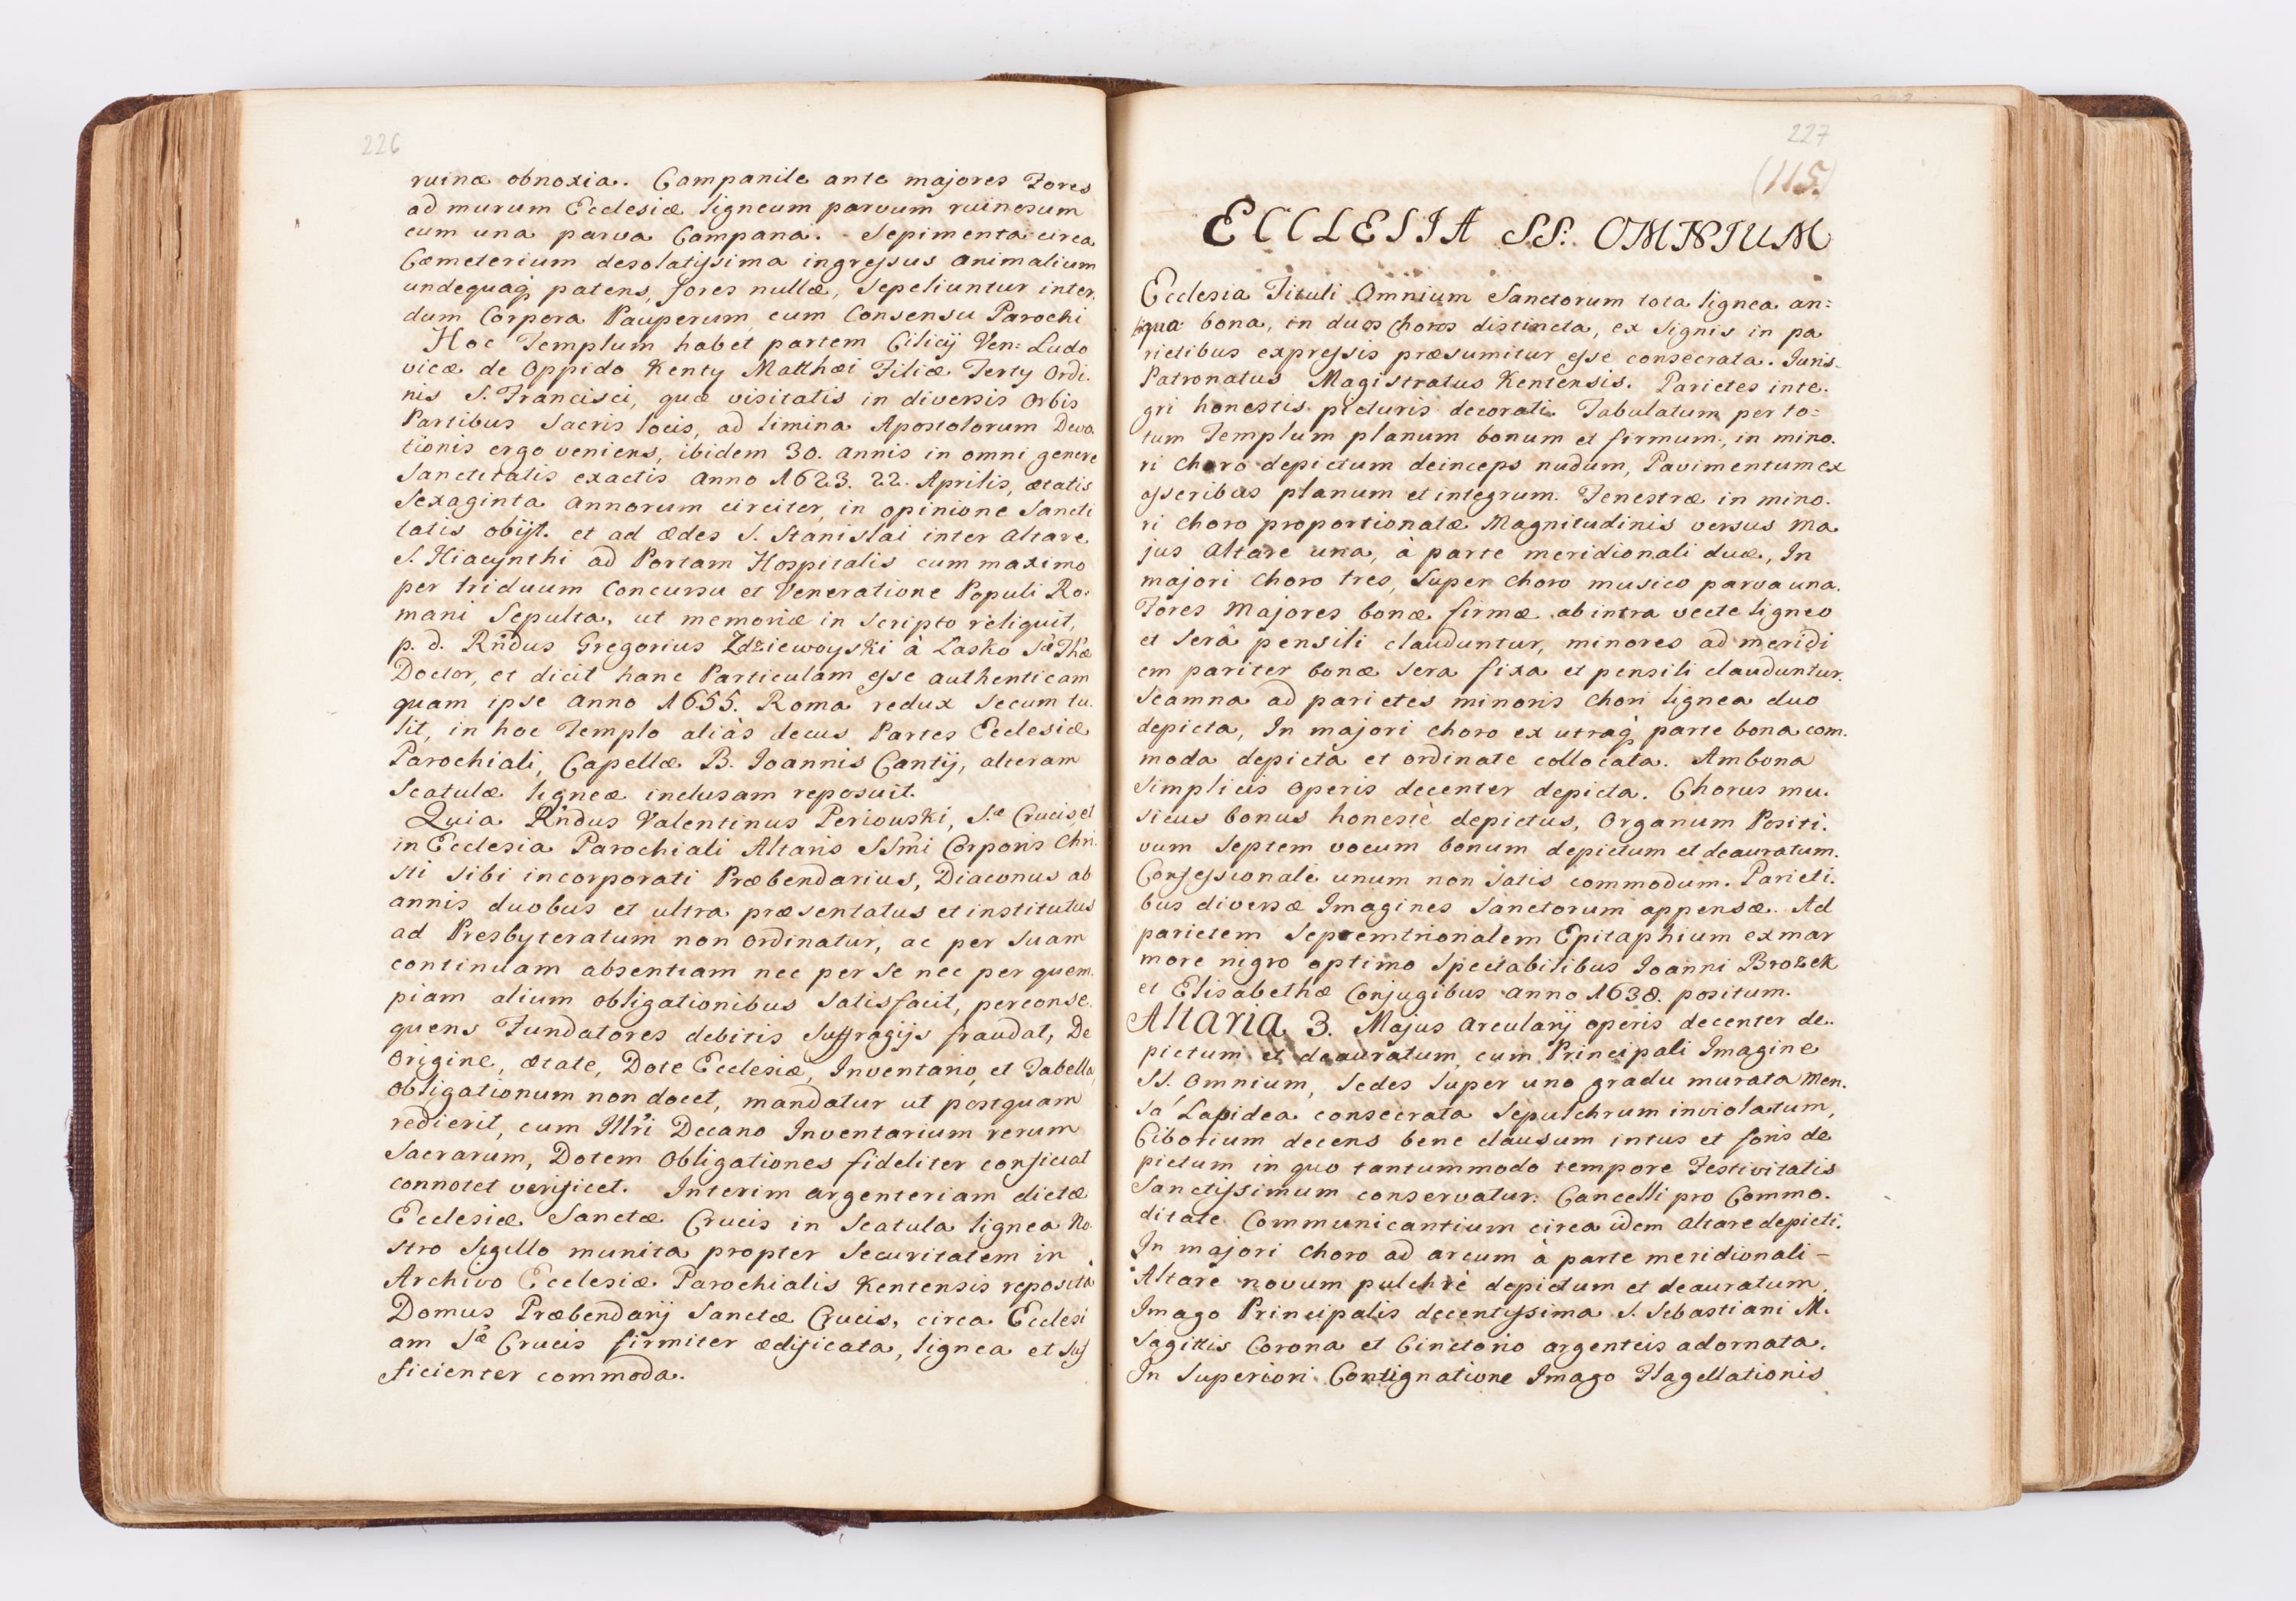 226
ruinæ obnoxia. Campanile ante majores Fores
ad murum Ecclesiæ ligneum parvum ruinosum
cum una parva Campana. Sepimenta circa
Cæmeterium desolatissima ingressus animalium
undequaq; patens, fores nullæ, sepeliuntur inter
dum Corpora Pauperum cum Consensu Parochi
Hoc Templum habet partem Cilicij Ven: Ludo
vicæ de Oppido Kenty Matthæi Filiæ Tertij Ordi.
nis S. Francisci, quæ visitatis in diversis Orbis
Partibus Sacris locis, ad limina Apostolorum Devo
tionis ergo veniens, ibidem 30. annis in omni genere
Sanctitatis exactis Anno 1623. 22. Aprilis, ætatis
Sexaginta Annorum circiter, in opinione Sancti
tatis obijt. et ad Ædes S. Stanislai inter Altare
S. Hiacynthi ad Portam Hospitalis cum maximo
per triduum Concursu et Veneratione Populi Ro:
mani Sepulta, ut memoriæ in scripto reliquit,
p. d. Rndus Gregorius Zdziewoyski à Lasko Sæ Thæ
Doctor, et dicit hanc Particulam esse authenticam
quam ipse Anno 1655. Roma redux secum tu.
lit, in hoc Templo aliàs decus Partes Ecclesiæ
Parochiali, Capellæ B. Joannis Cantij, alteram
Scatulæ ligneæ inclusam reposuit.
Quia Rndus Valentinus Periouski, Sæ Crucis, et
in Ecclesia Parochiali Altaris SSmi Corporis Chri
sti sibi incorporati Præbendarius, Diaconus ab
annis duobus et ultra præsentatus et institutus
ad Presbyteratum non ordinatur, ac per suam
continuam absentiam nec per se nec per quem.
piam alium obligationibus satisfacit, perconse.
quens Fundatores debitis Suffragijs fraudat, De
Origine, ætate, Dote Ecclesiæ, Inventario, et Tabella
Obligationum non docet, mandatur ut postquam
redierit, cum Illri Decano Inventarium rerum
Sacrarum, Dotem Obligationes fideliter conficiat
connotet verificet. Interim argenteriam dictæ
Ecclesiæ Sanctæ Crucis in Scatula lignea No.
stro Sigillo munita propter Securitatem in
Archivo Ecclesiæ Parochialis Kentensis reposita
Domus Præbendarij Sanctæ Crucis, circa Ecclesi
am Sæ Crucis firmiter ædificata, lignea et suf
ficienter commoda.
227
(115.)
ECCLESIA SS. OMNIUM
Ecclesia Tituli Omnium Sanctorum tota lignea an=
tiqua bona, in duos choros distincta, ex signis in pa
rietibus expressis præsumitur esse consecrata. Juris.
Patronatus Magistratus Kentensis. Parietes inte.
gri honestis picturis decorati. Tabulatum per to=
tum Templum planum bonum et firmum, in mino.
ri choro depictum deinceps nudum, Pavimentum ex
asseribus planum et integrum. Fenestræ in mino.
ri choro proportionatæ Magnitudinis versus Ma
jus Altare una, à parte meridionali duæ, In
majori choro tres, Super choro musico parva una.
Fores Majores bonæ firmæ ab intra vecte ligneo
et Serâ pensili clauduntur, minores ad meridi
em pariter bonæ sera fixa et pensili clauduntur.
Scamna ad parietes minoris chori lignea duo
depicta, In majori choro ex utraq; parte bona com.
moda depicta et ordinate collocata. Ambona
Simplicis Operis decenter depicta. Chorus mu.
sicus bonus honestè depictus, Organum Positi.
vum Septem vocum bonum depictum et deauratum.
Confessionale unum non satis commodum. Parieti.
bus diversæ Imagines Sanctorum appensæ. Ad
parietem Septemtrionalem Epitaphium ex mar
more nigro optimo Spectabilibus Joanni Brozek
et Elisabethæ Conjugibus Anno 1638. positum.
Altaria 3. Majus arcularij operis decenter de..
pictum et deauratum cum Principali Imagine
SS. Omnium, Sedes super uno gradu murata Men.
sa Lapidea consecrata Sepulchrum inviolatum,
Ciborium decens bene clausum intus et foris de
pictum in quo tantummodo tempore Festivitatis
Sanctissimum conservatur. Cancelli pro Commo.
ditate Communicantium circa idem Altare depicti.
In majori choro ad arcum à parte meridionali -
Altare novum pulchrè depictum et deauratum,
Imago Principalis decentissima S. Sebastiani M.
Sagittis Corona et Cinctorio argenteis adornata.
In Superiori Contignatione Imago Flagellationis